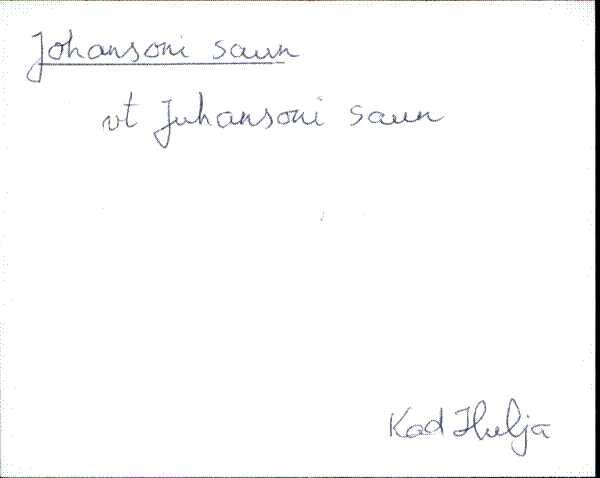 Johansoni saun
vt Juhansoni saun
Kad Hulja